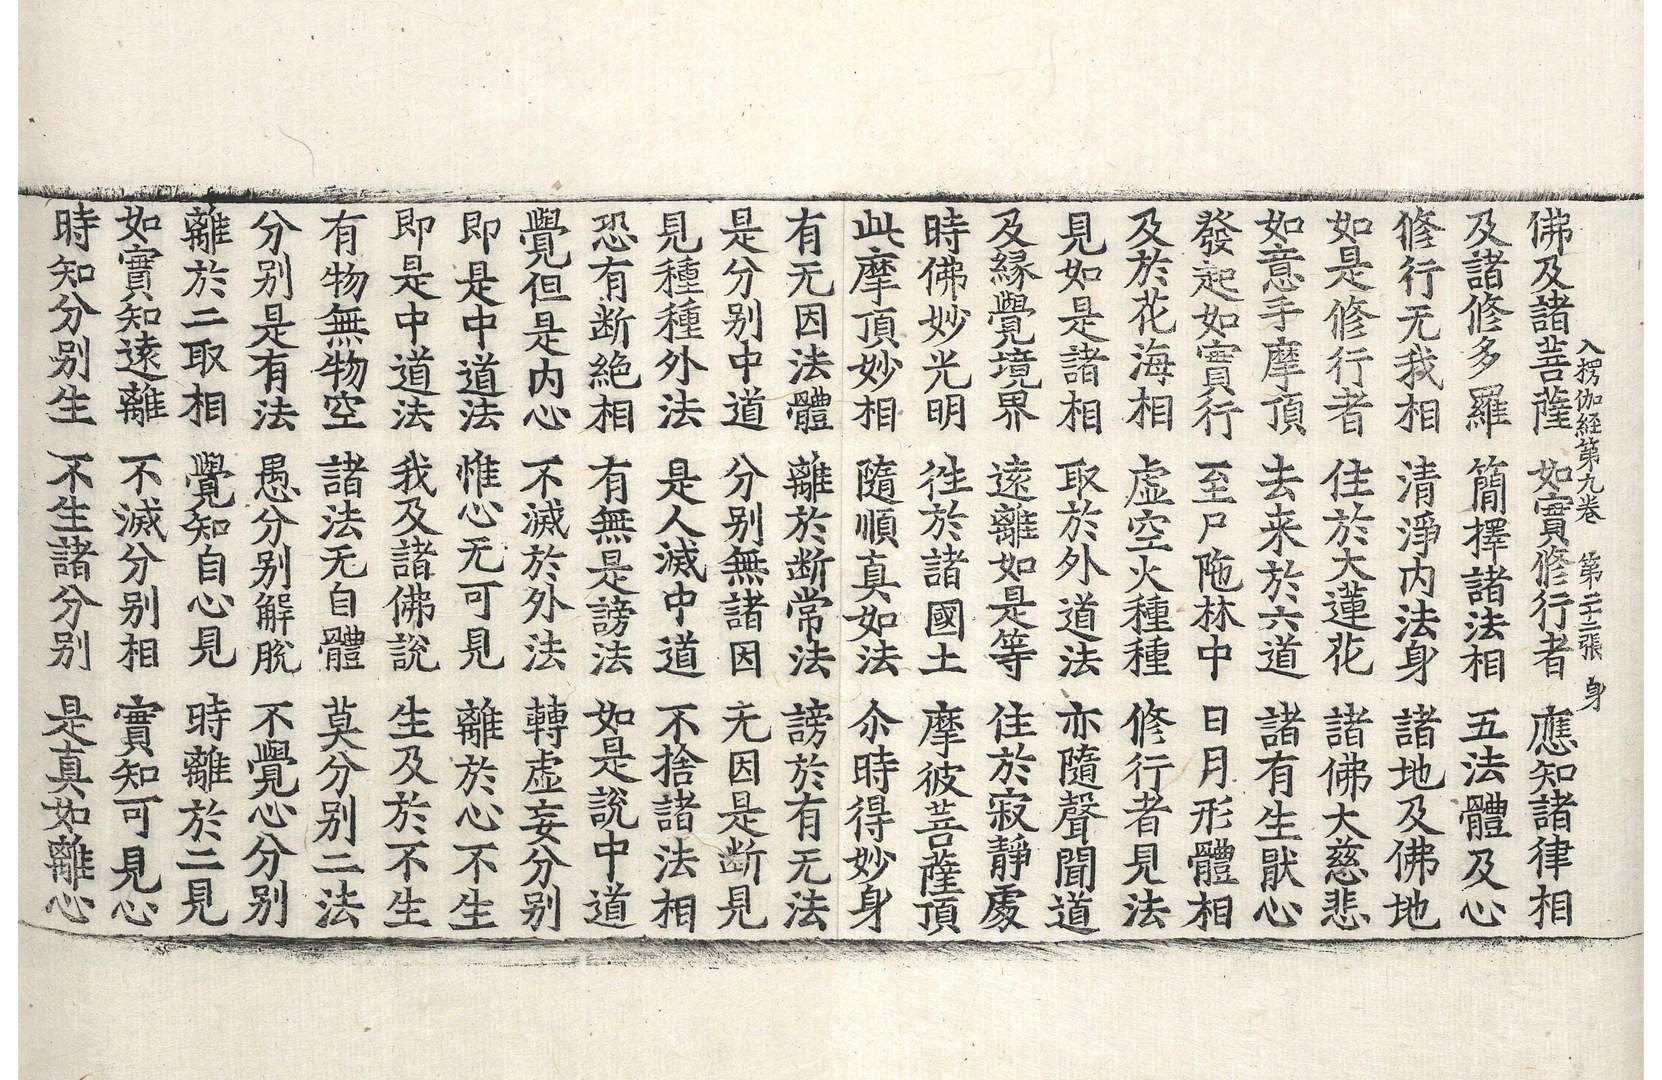 入楞伽経第九卷 第二十二張 身
佛及諸菩薩 如實修行者 應知諸律相
及諸修多羅 簡擇諸法相 五法體及心
修行无我相 清淨內法身 諸地及佛地
如是修行者 住於大蓮花 諸佛大慈悲
如意手摩頂 去来於六道 諸有生猒心
發起如實行 至尸陁林中 日月形體相
及於花海相 虛空火種種 修行者見法
見如是諸相 取於外道法 亦隨聲聞道
及緣覺境界 遠離如是等 住於寂靜處
時佛妙光明 往於諸國土 摩彼菩薩頂
此摩頂妙相 隨順真如法 尒時得妙身
有无因法體 離於断常法 謗於有无法
是分別中道 分別無諸因 无因是断見
見種種外法 是人滅中道 不捨諸法相
恐有断絕相 有無是謗法 如是說中道
覺但是內心 不滅於外法 轉虛妄分別
即是中道法 惟心无可見 離於心不生
即是中道法 我及諸佛說 生及於不生
有物無物空 諸法无自體 莫分別二法
分別是有法 愚分別解脫 不覺心分別
離於二取相 覺知自心見 時離於二見
如實知遠離 不滅分別相 實知可見心
時知分別生 不生諸分別 是真如離心